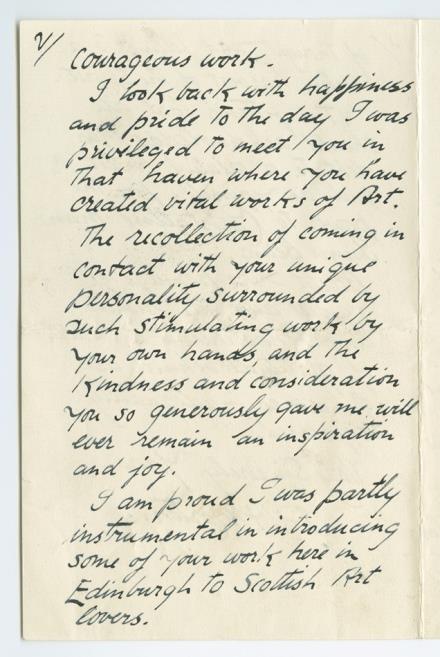 2/
courageous work.
I look back with happiness
and pride to the day I was
privileged to meet you in
that haven where you have
created vital works of Art.
The recollection of coming in
contact with your unique
personality surrounded by
such stimulating work by
your own hands, and the
kindness and consideration
you so generously gave me, will
ever remain an inspiration
and joy.
I am proud I was partly
instrumental in introducing
some of your work here in
Edinburgh to Scottish Art
lovers.